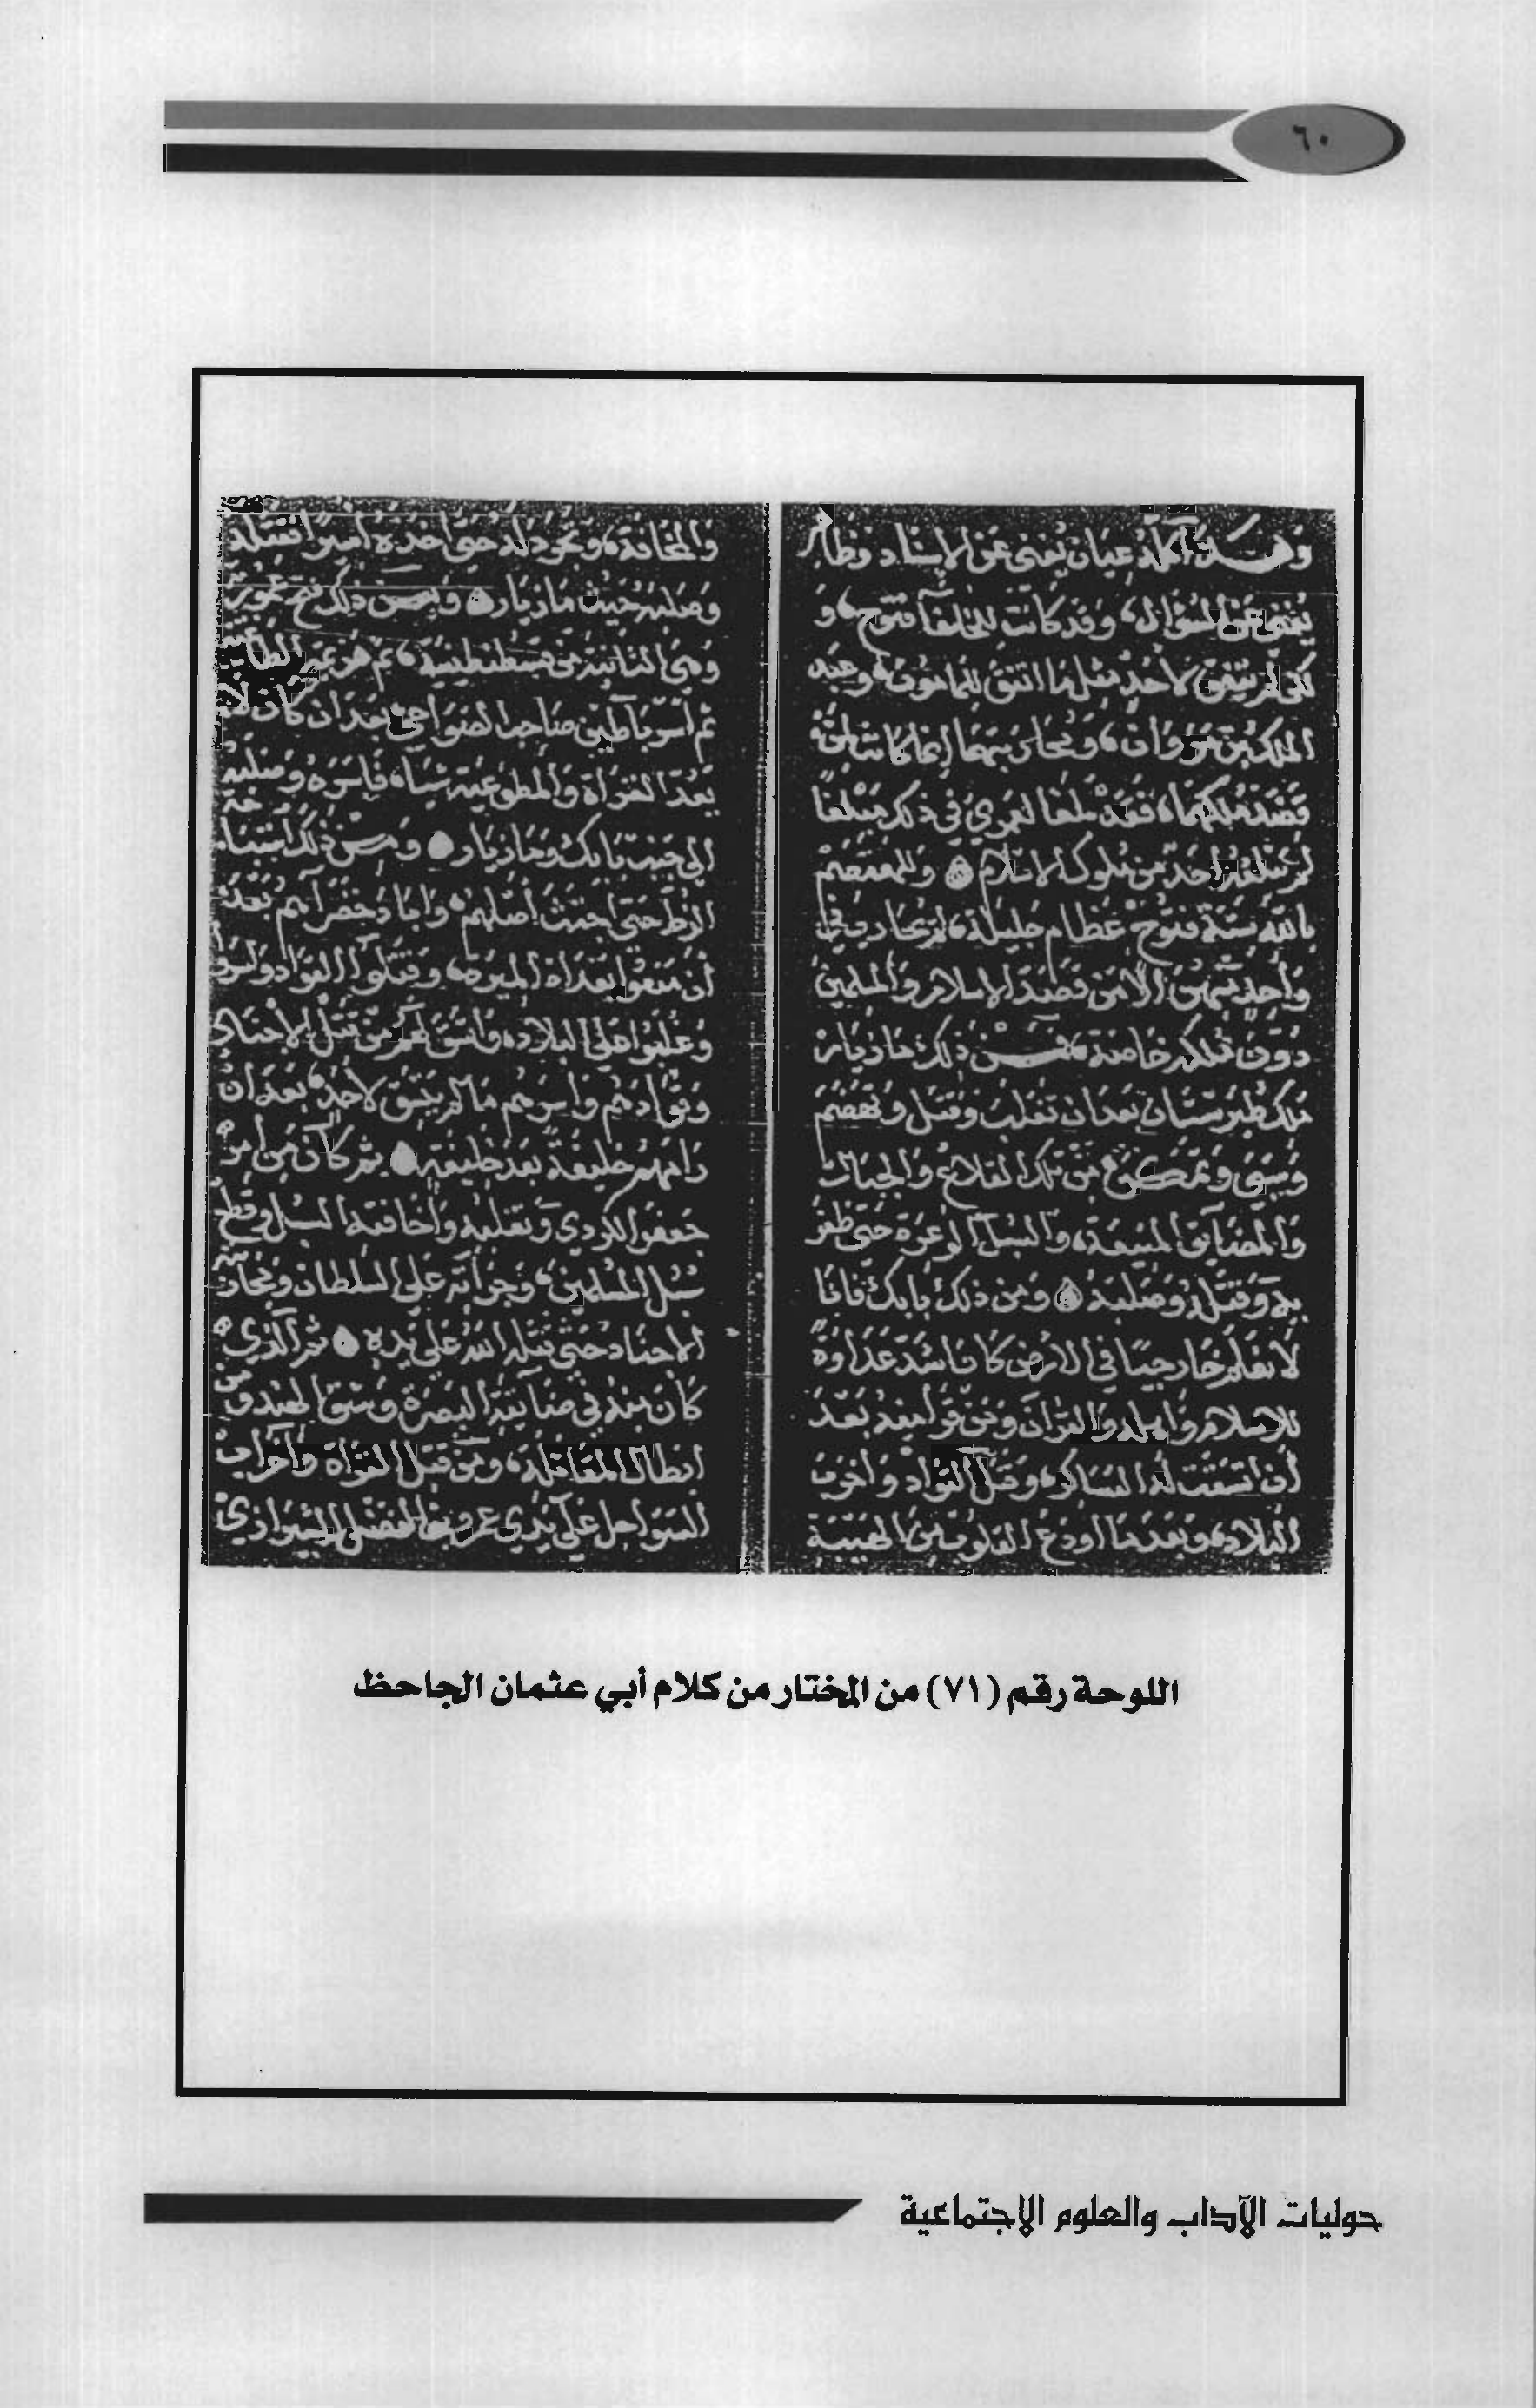 ٦٠
وهذا كله عيان يغني عن الاسناد وظاهر
يغني عن السؤال، وقد كانت للخلفآء فتوح، و
لكن لم يتفق لأحد مثل ما اتفق للمامون، وعبد
الملك بن مروان، ومحاربتهما انما كانت لمن
قصد ملكهما، فقد بلغا لعمري في ذلك مبلغاً
لم يبلغه احد من ملوك الاسلام ۞ وللمعتصم
بالله ستة فتوح عظام جليلة، لم يحارب في
واحد منهن الا من قصد الاسلام والمسلمين
دون ملكه خاصة، فمن ذلك مازيار
ملك طبرستان بعد ان تغلب وقتل وتهضم
وسبى من تلك القلاع والجبال
والمضايق المنيعة، والسبل الوعرة حتى ظفر
به وقتله وصلبه ۞ ومن ذلك بابك فانا
لا نعلم خارجيا في الارض كان اشد عداوة
للاسلام واهله والقرآن ومن قوا بعد
أن اتسقت له العساكر، وقتل القواد واخرب
البلاد، وبعد ما اودع القلوب من الهيبة
والمخافة، حتى اخذه اسيرا فقتله
وصلبه حيث مازيار ۞ ومن ذلك فتح عمورية
وهي الثانية من قسطنطينية، ثم
ثم اسر باطيس صاحب الضواحي بعد ان كان لا
يعد الغزاة والمطوعية شيا، فاسره وصلبه
الى جنب بابك ومازيار ۞ ومن ذلك
الزط حتى اجتث أصلهم، واباد خضرآءهم بعد
أن منعوا بغداد الميرة، وقتلوا القواد
وغلبوا على البلاد، واتسق لهم من قتل الأجناد
وقوادهم واسرهم ما لم يتفق لأحد، بعد ان
رامهم خليفة بعد خليفة ۞ ثم كان من أمر
جعفر الكردي وتغلبه واخافته السبل وقطع
سبل المسلمين، وجرأته على السلطان
الاجناد حتى قتله الله على يده ۞ ثم الذي
كان بعد في البصرة وسوق الهند، ومن
ابطال المقاتلة، ومن قتل الغزاة
السواحل على يدي
اللوحة رقم (٧١) من المختار من كلام أبي عثمان الجاحظ
حوليات الآداب والعلوم الاجتماعية